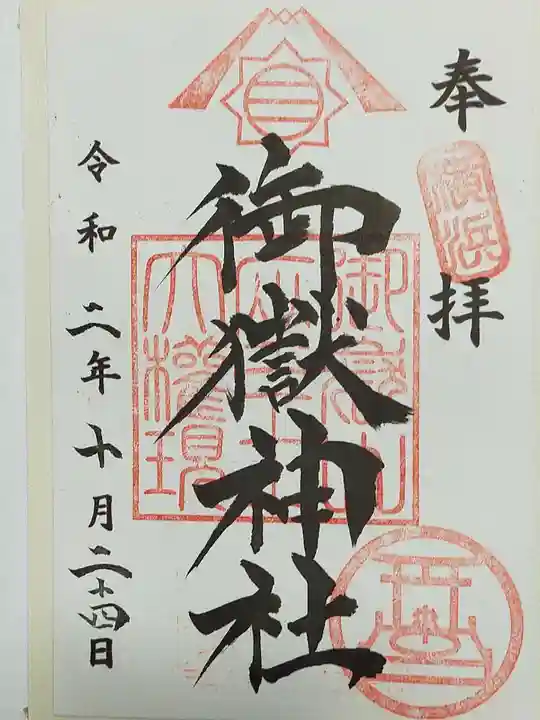 奉拝
横浜
御嶽神社
御嶽山
大権現
令和二年十月二十四日